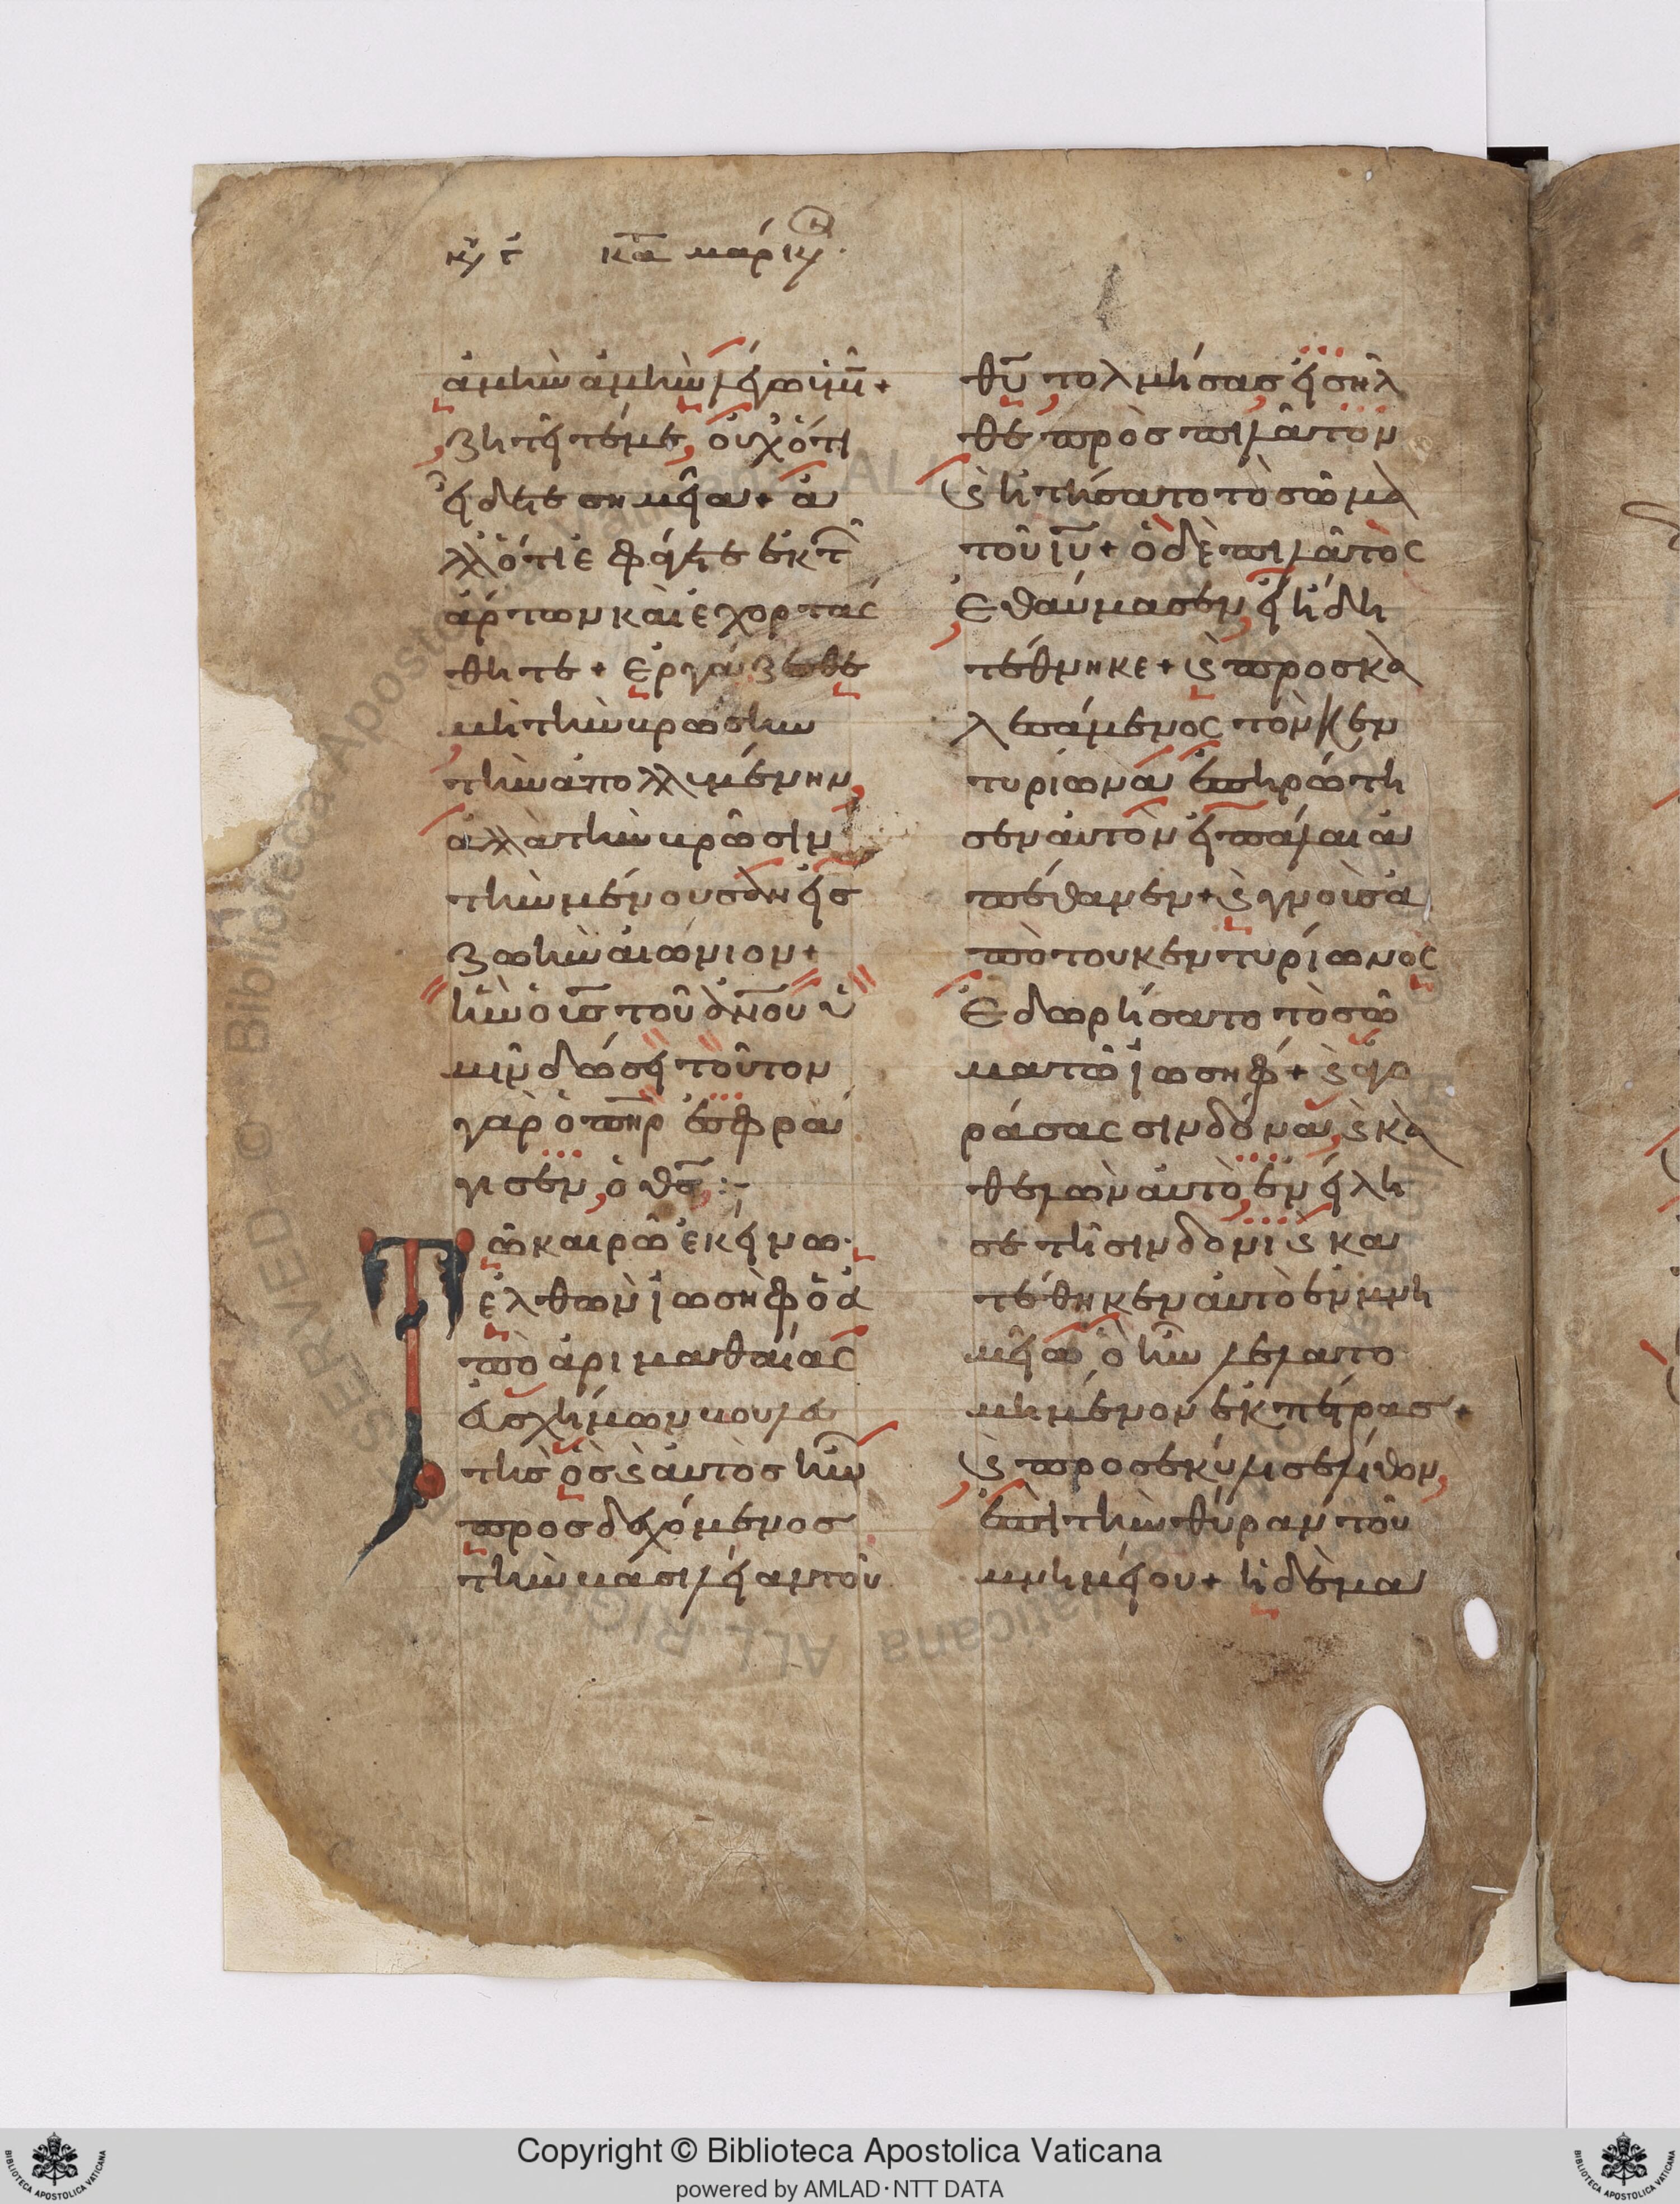 κυ γ κατ μάρκον
ἀμὴν ἀμὴν λέγω ὑμῖν+
ζητεῖτέ με, οὐχ ὅτι
εἴδετε σημεῖα+ ἀλ
λ᾽ ὅτι ἐφάγετε ἐκ τῶν
ἄρτων καὶ ἐχορτάσ
θητε + ἐργάζεσθε
μὴ τὴν βρῶσην
τὴν ἀπολλυμένην,
ἀλλὰ τὴν βρῶσιν
τὴν μένουσαν εἰς
ζωὴν αἰώνιον+
ἣν ὁ υ̅ς̅ τοῦ α̅ν̅ου̅ ὑ
μῖν δώσει τοῦτον
γὰρ ὁ π̅η̅ρ̅ ἐσφρά
γισεν, ὁ θ̅ς̅ :-
Τῶ καιρῶ ἐκείνω·
ἐλθὼν ἰωσὴφ ὁ ἀ
πὸ ἀριμαθαίας
εὐσχήμων βουλευ
τὴς ὃς ϗ αὐτὸς ἦν
προσδεχόμενος
τὴν βασιλείαν τοῦ
θ̅υ̅ τολμήσας εἰσῆλ
θε πρὸς πιλᾶτον
ϗ ἠτήσατο τὸ σῶμα
τοῦ ι̅υ̅ + ὁ δὲ πιλᾶτος
ἐθαύμασεν, εἰ ἤδη
τέθνηκε + ϗ προσκα
λεσάμενος τὸν κεν
τυρίωνα ἐπηρώτη
σεν αὐτὸν εἰ πάλαι ἀ
πέθανεν + ϗ γνοὺς ἀ
πὸ του κεντυρίωνος
ἐδωρήσατο τὸ σῶ
μα τῶ ἰωσήφ + ϗ ἀγο
ράσας σινδόνα, ϗ κα
θελὼν αὐτὸ, ἐνείλη
σε τῆ σινδόνι ϗ κα
τέθηκεν αὐτὸ ἐν μνη
μείω ὃ ἦν λελατο
μημένον ἐκ πέτρας +
ϗ προσεκύλισε λίθον,
ἐπὶ τὴν θύραν τοῦ
μνημείου + ἡ δὲ μα
Copyright © Biblioteca Apostolica Vaticana
powered by AMLAD·NTT DATA